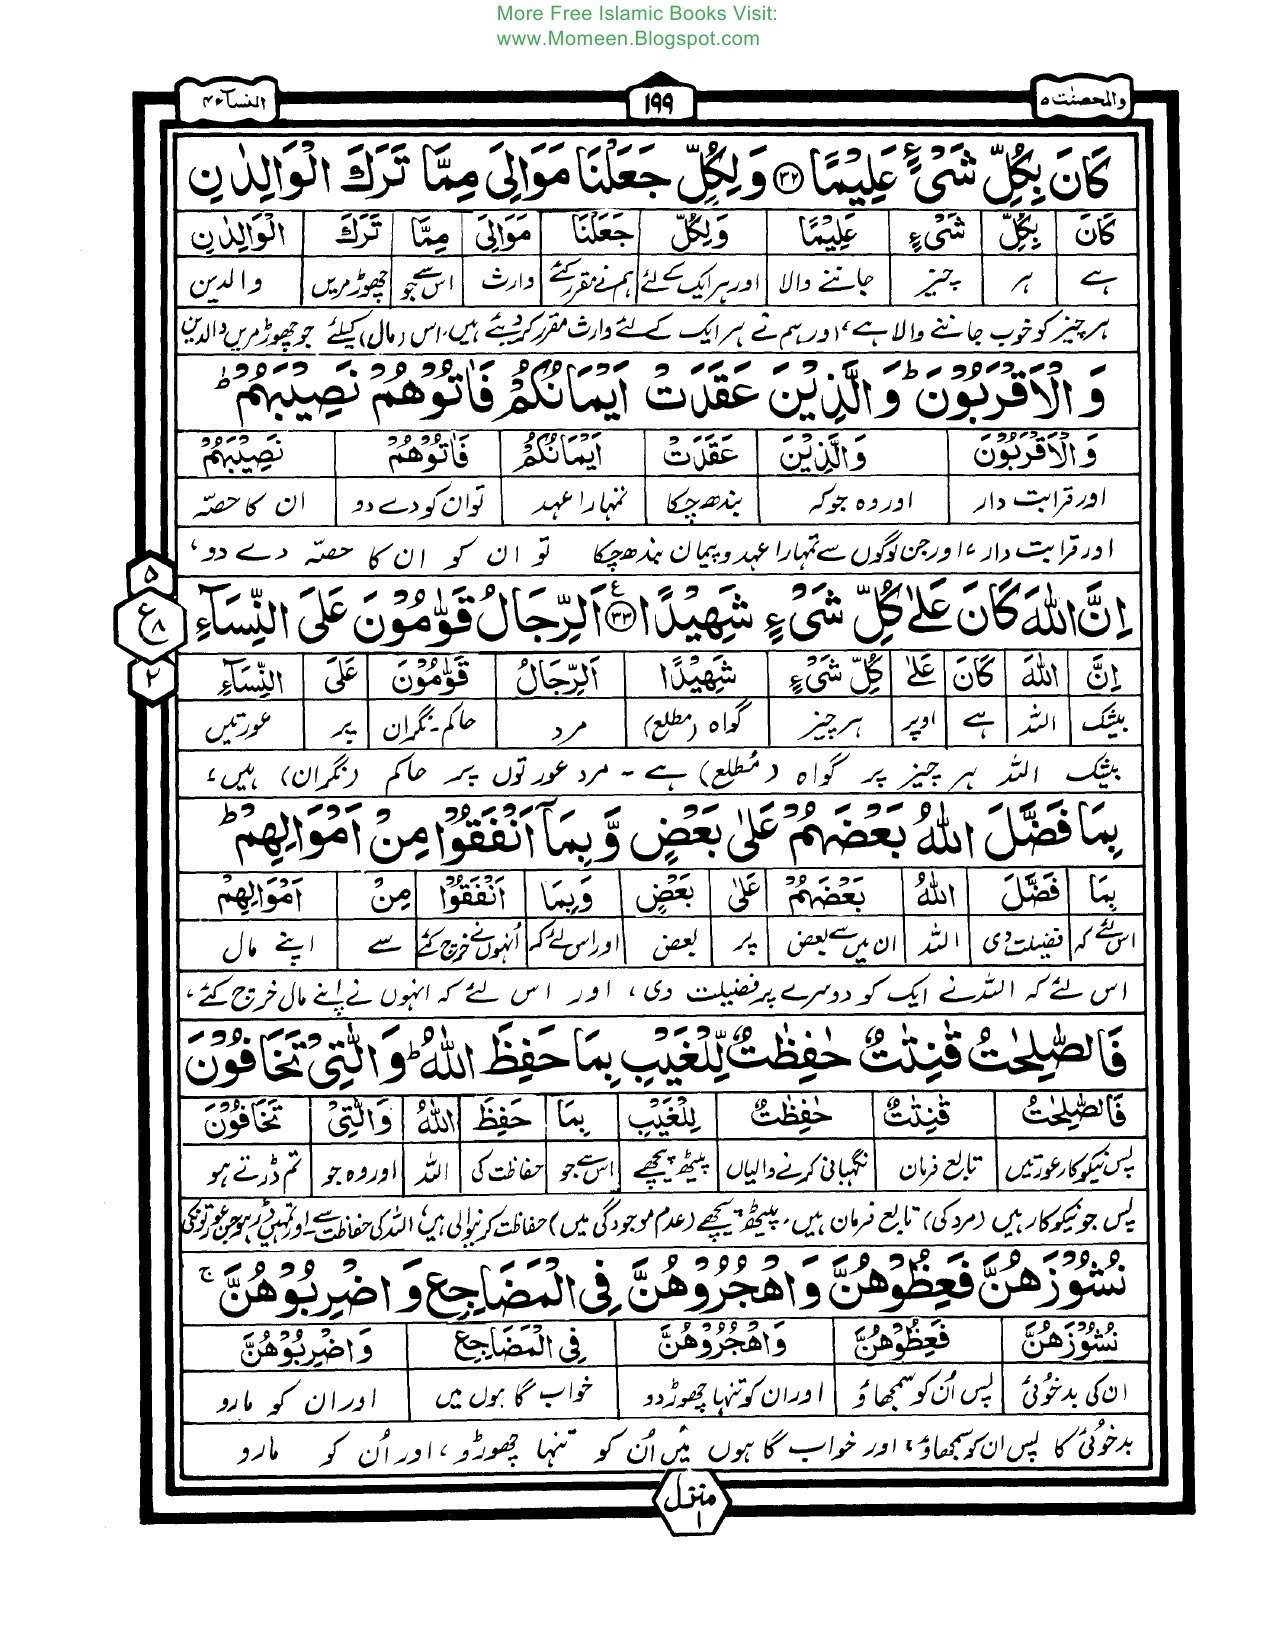 More Free Islamic Books Visit:
www.Momeen.Blogspot.com
والمحصنٰت ۵ ۱۹۹ النسآء ۴
كَانَ بِكُلِّ شَىْءٍ عَلِيْمًا ۝۳۲ وَلِكُلٍّ جَعَلْنَا مَوَالِىَ مِمَّا تَرَكَ الْوَالِدٰنِ
كَانَ بِكُلِّ شَىْءٍ عَلِيْمًا وَلِكُلٍّ جَعَلْنَا مَوَالِىَ مِمَّا تَرَكَ الْوَالِدٰنِ
ہے ہر چیز جاننے والا اور ہر ایک کے لئے ہم نے مقرر کئے وارث اس سے جو چھوڑ مریں والدین
ہر چیز کو خوب جاننے والا ہے، اور ہم نے ہر ایک کے لئے وارث مقرر کر دیئے ہیں، اس (مال) کیلئے جو چھوڑ مریں والدین
وَالْاَقْرَبُوْنَ ؕ وَالَّذِيْنَ عَقَدَتْ اَيْمَانُكُمْ فَاٰتُوْهُمْ نَصِيْبَهُمْ ؕ
وَالْاَقْرَبُوْنَ وَالَّذِيْنَ عَقَدَتْ اَيْمَانُكُمْ فَاٰتُوْهُمْ نَصِيْبَهُمْ
اور قرابت دار اور وہ جو کہ بندھ چکا تمہارا عہد تو ان کو دے دو ان کا حصّہ
اور قرابت دار، اور جن لوگوں سے تمہارا عہد و پیمان بندھ چکا تو ان کو ان کا حصّہ دے دو،
۵
اِنَّ اللّٰهَ كَانَ عَلٰى كُلِّ شَىْءٍ شَهِيْدًا ۝۳۳ع اَلرِّجَالُ قَوّٰمُوْنَ عَلَى النِّسَآءِ
ع ۸
اِنَّ اللّٰهَ كَانَ عَلٰى كُلِّ شَىْءٍ شَهِيْدًا اَلرِّجَالُ قَوّٰمُوْنَ عَلَى النِّسَآءِ
۲
بیشک اللہ ہے اوپر ہر چیز گواہ (مطلع) مرد حاکم۔نگران پر عورتیں
بیشک اللہ ہر چیز پر گواہ (مُطلع) ہے ۔ مرد عورتوں پر حاکم (نگران) ہیں،
بِمَا فَضَّلَ اللّٰهُ بَعْضَهُمْ عَلٰى بَعْضٍ وَّبِمَآ اَنْفَقُوْا مِنْ اَمْوَالِهِمْ ؕ
بِمَا فَضَّلَ اللّٰهُ بَعْضَهُمْ عَلٰى بَعْضٍ وَبِمَا اَنْفَقُوْا مِنْ اَمْوَالِهِمْ
اس لئے کہ فضیلت دی اللہ ان میں سے بعض پر بعض اور اس لئے کہ اُنہوں نے خرچ کئے سے اپنے مال
اس لئے کہ اللہ نے ایک کو دوسرے پر فضیلت دی، اور اس لئے کہ انہوں نے اپنے مال خرچ کئے،
فَالصّٰلِحٰتُ قٰنِتٰتٌ حٰفِظٰتٌ لِّلْغَيْبِ بِمَا حَفِظَ اللّٰهُ ؕ وَالّٰتِىْ تَخَافُوْنَ
فَالصّٰلِحٰتُ قٰنِتٰتٌ حٰفِظٰتٌ لِلْغَيْبِ بِمَا حَفِظَ اللّٰهُ وَالّٰتِىْ تَخَافُوْنَ
پس نیکوکار عورتیں تابع فرمان نگہبانی کرنے والیاں پیٹھ پیچھے اس سے جو حفاظت کی اللہ اور وہ جو تم ڈرتے ہو
پس جو نیکوکار ہیں (مرد کی) تابع فرمان ہیں، پیٹھ پیچھے (عدم موجودگی میں) حفاظت کرنیوالی ہیں اللہ کی حفاظت سے۔ اور تمہیں ڈر ہو جن عورتوں کی
نُشُوْزَهُنَّ فَعِظُوْهُنَّ وَاهْجُرُوْهُنَّ فِى الْمَضَاجِعِ وَاضْرِبُوْهُنَّ ۚ
نُشُوْزَهُنَّ فَعِظُوْهُنَّ وَاهْجُرُوْهُنَّ فِى الْمَضَاجِعِ وَاضْرِبُوْهُنَّ
ان کی بدخُوئی پس اُن کو سمجھاؤ اور ان کو تنہا چھوڑ دو خواب گاہوں میں اور ان کو مارو
بدخُوئی کا پس ان کو سمجھاؤ، اور خواب گاہوں میں اُن کو تنہا چھوڑو، اور اُن کو مارو
منزل ۱